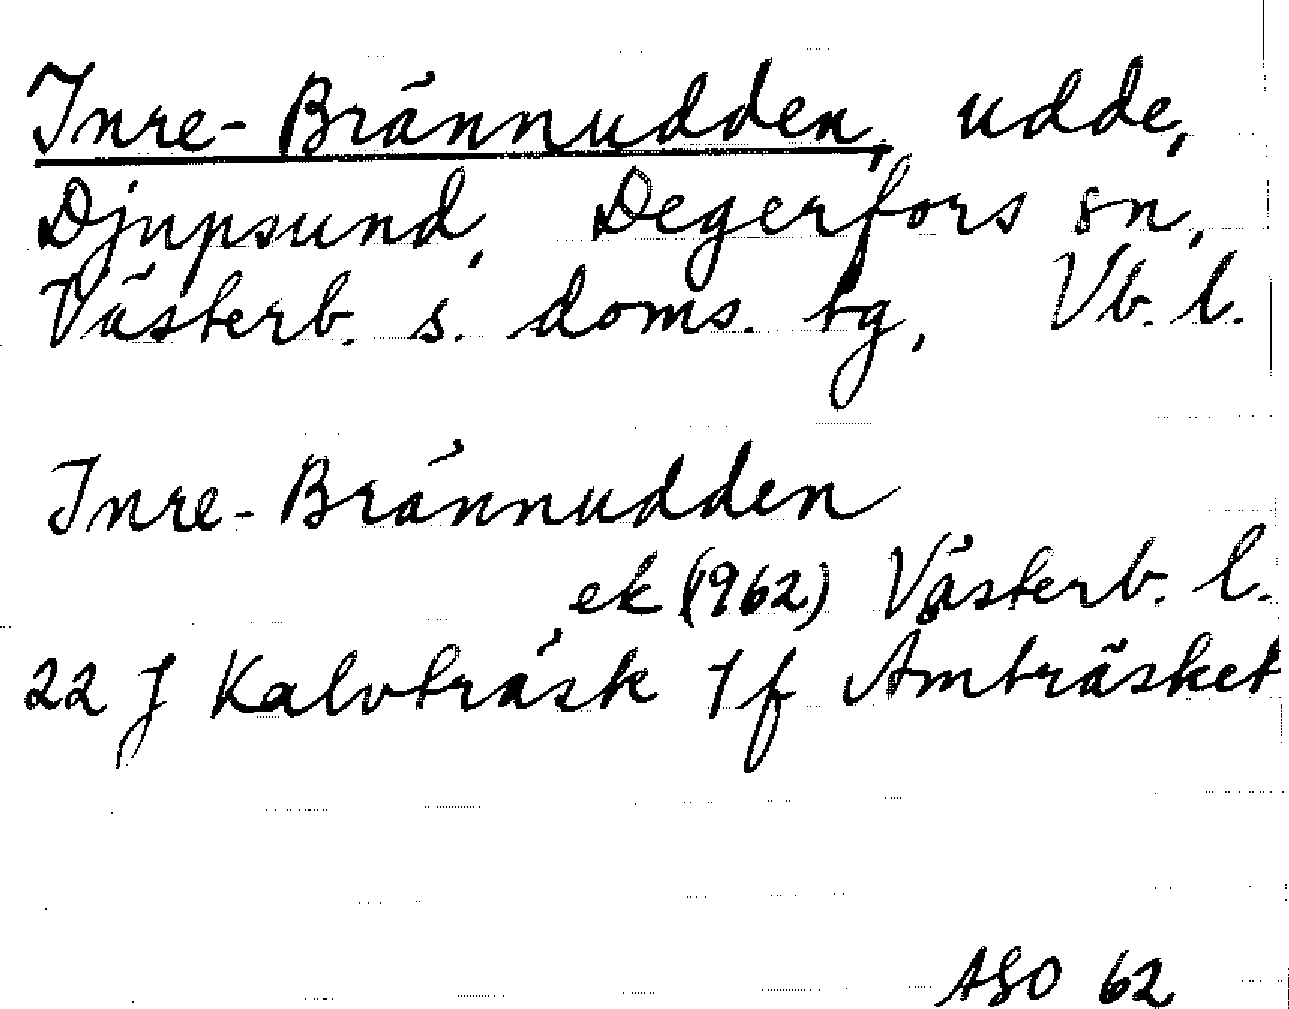 Inre-Brännudden, udde,
Djupsund, Degerfors sn,
Västerb. s. doms. tg, Vb. l.
Inre-Brännudden
ek (1962) Västerb. l.
22 J Kalvträsk 7 f Åmträsket
ASO 62